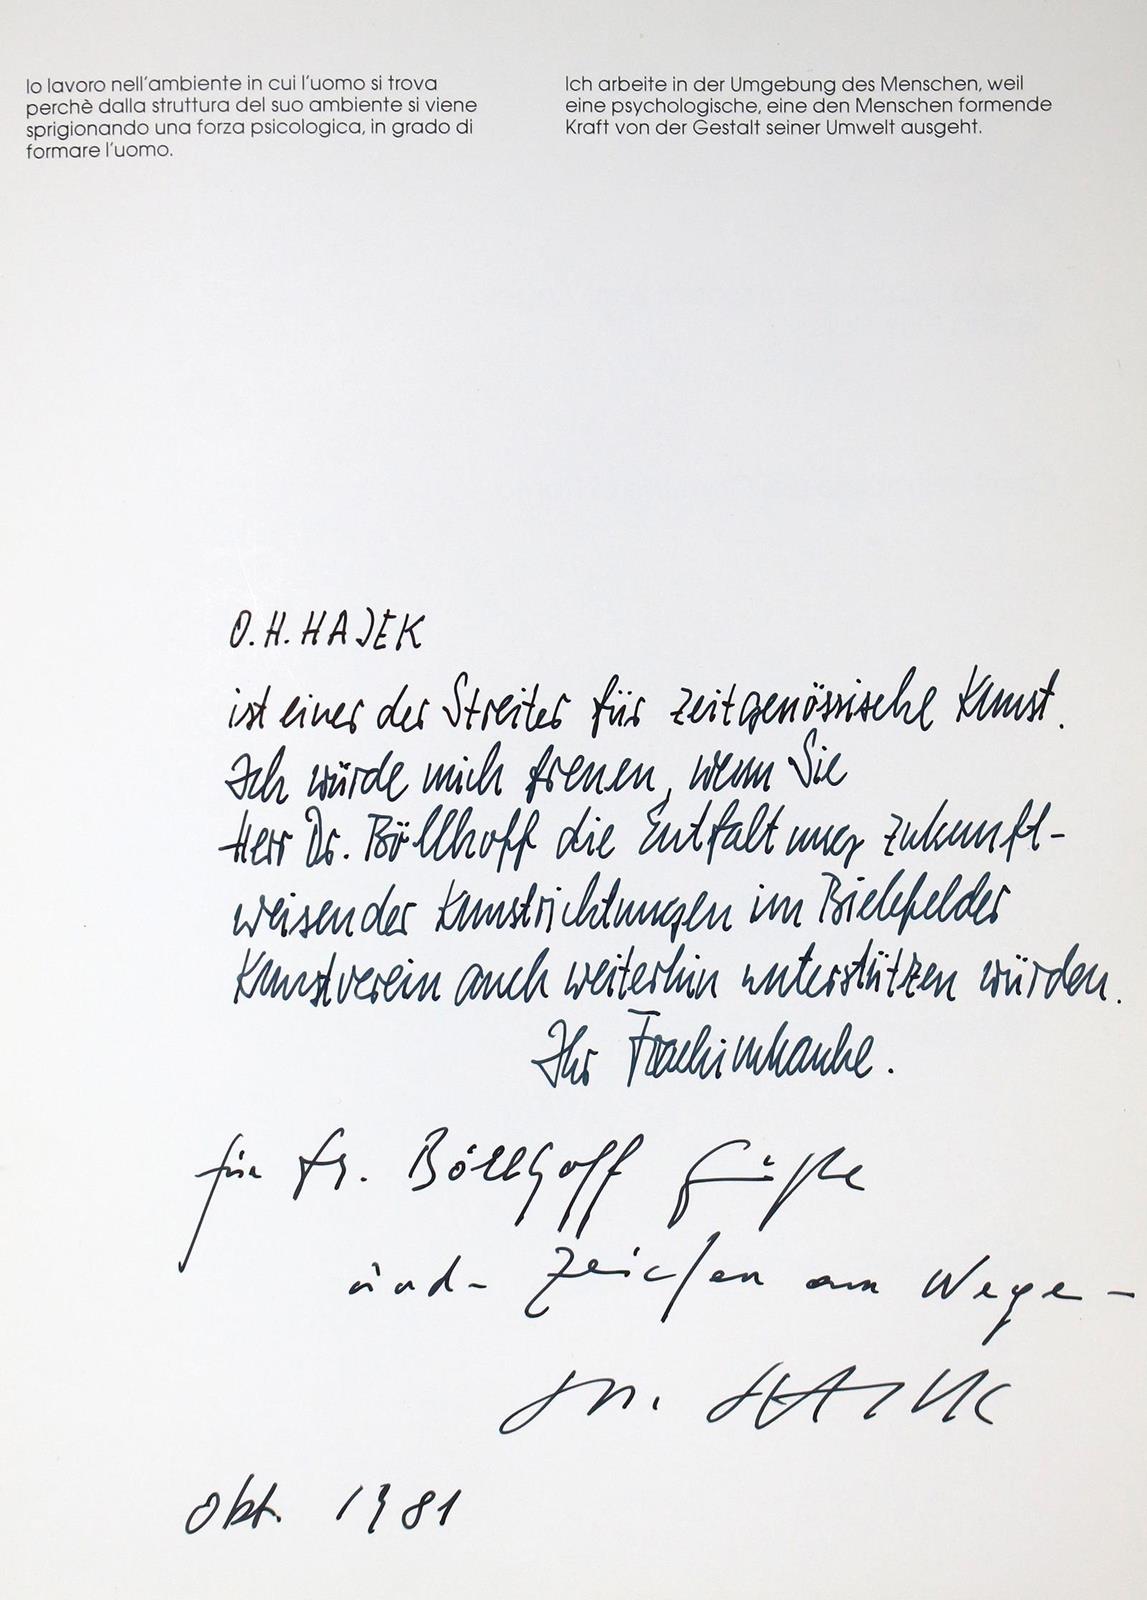 Io lavoro nell'ambiente in cui l'uomo si trova
perchè dalla struttura del suo ambiente si viene
sprigionando una forza psicologica, in grado di
formare l'uomo.
Ich arbeite in der Umgebung des Menschen, weil
eine psychologische, eine den Menschen formende
Kraft von der Gestalt seiner Umwelt ausgeht.
O. H. HAJEK
ist einer der Streiter für zeitgenössische Kunst.
Ich würde mich freuen, wenn Sie
Herr Dr. Böllhoff die Entfaltung zukunft-
weisender Kunstrichtungen im Bielefelder
Kunstverein auch weiterhin unterstützen würden.
Ihr
für Fr. Böllhoff Grüße
und - Zeichen am Wege -
Okt. 1981